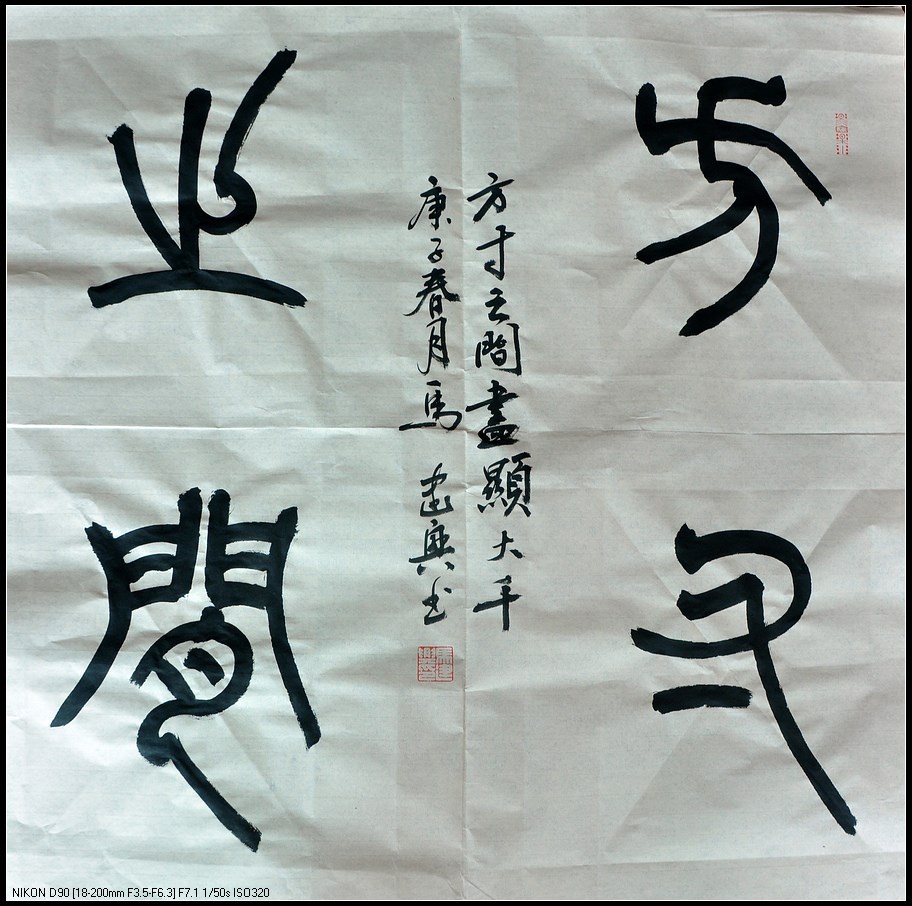 方寸
之間
方寸之間盡顯大千
庚子春月馬建興书
NIKON D90 [18-200mm F3.5-F6.3] F7.1 1/50s ISO320